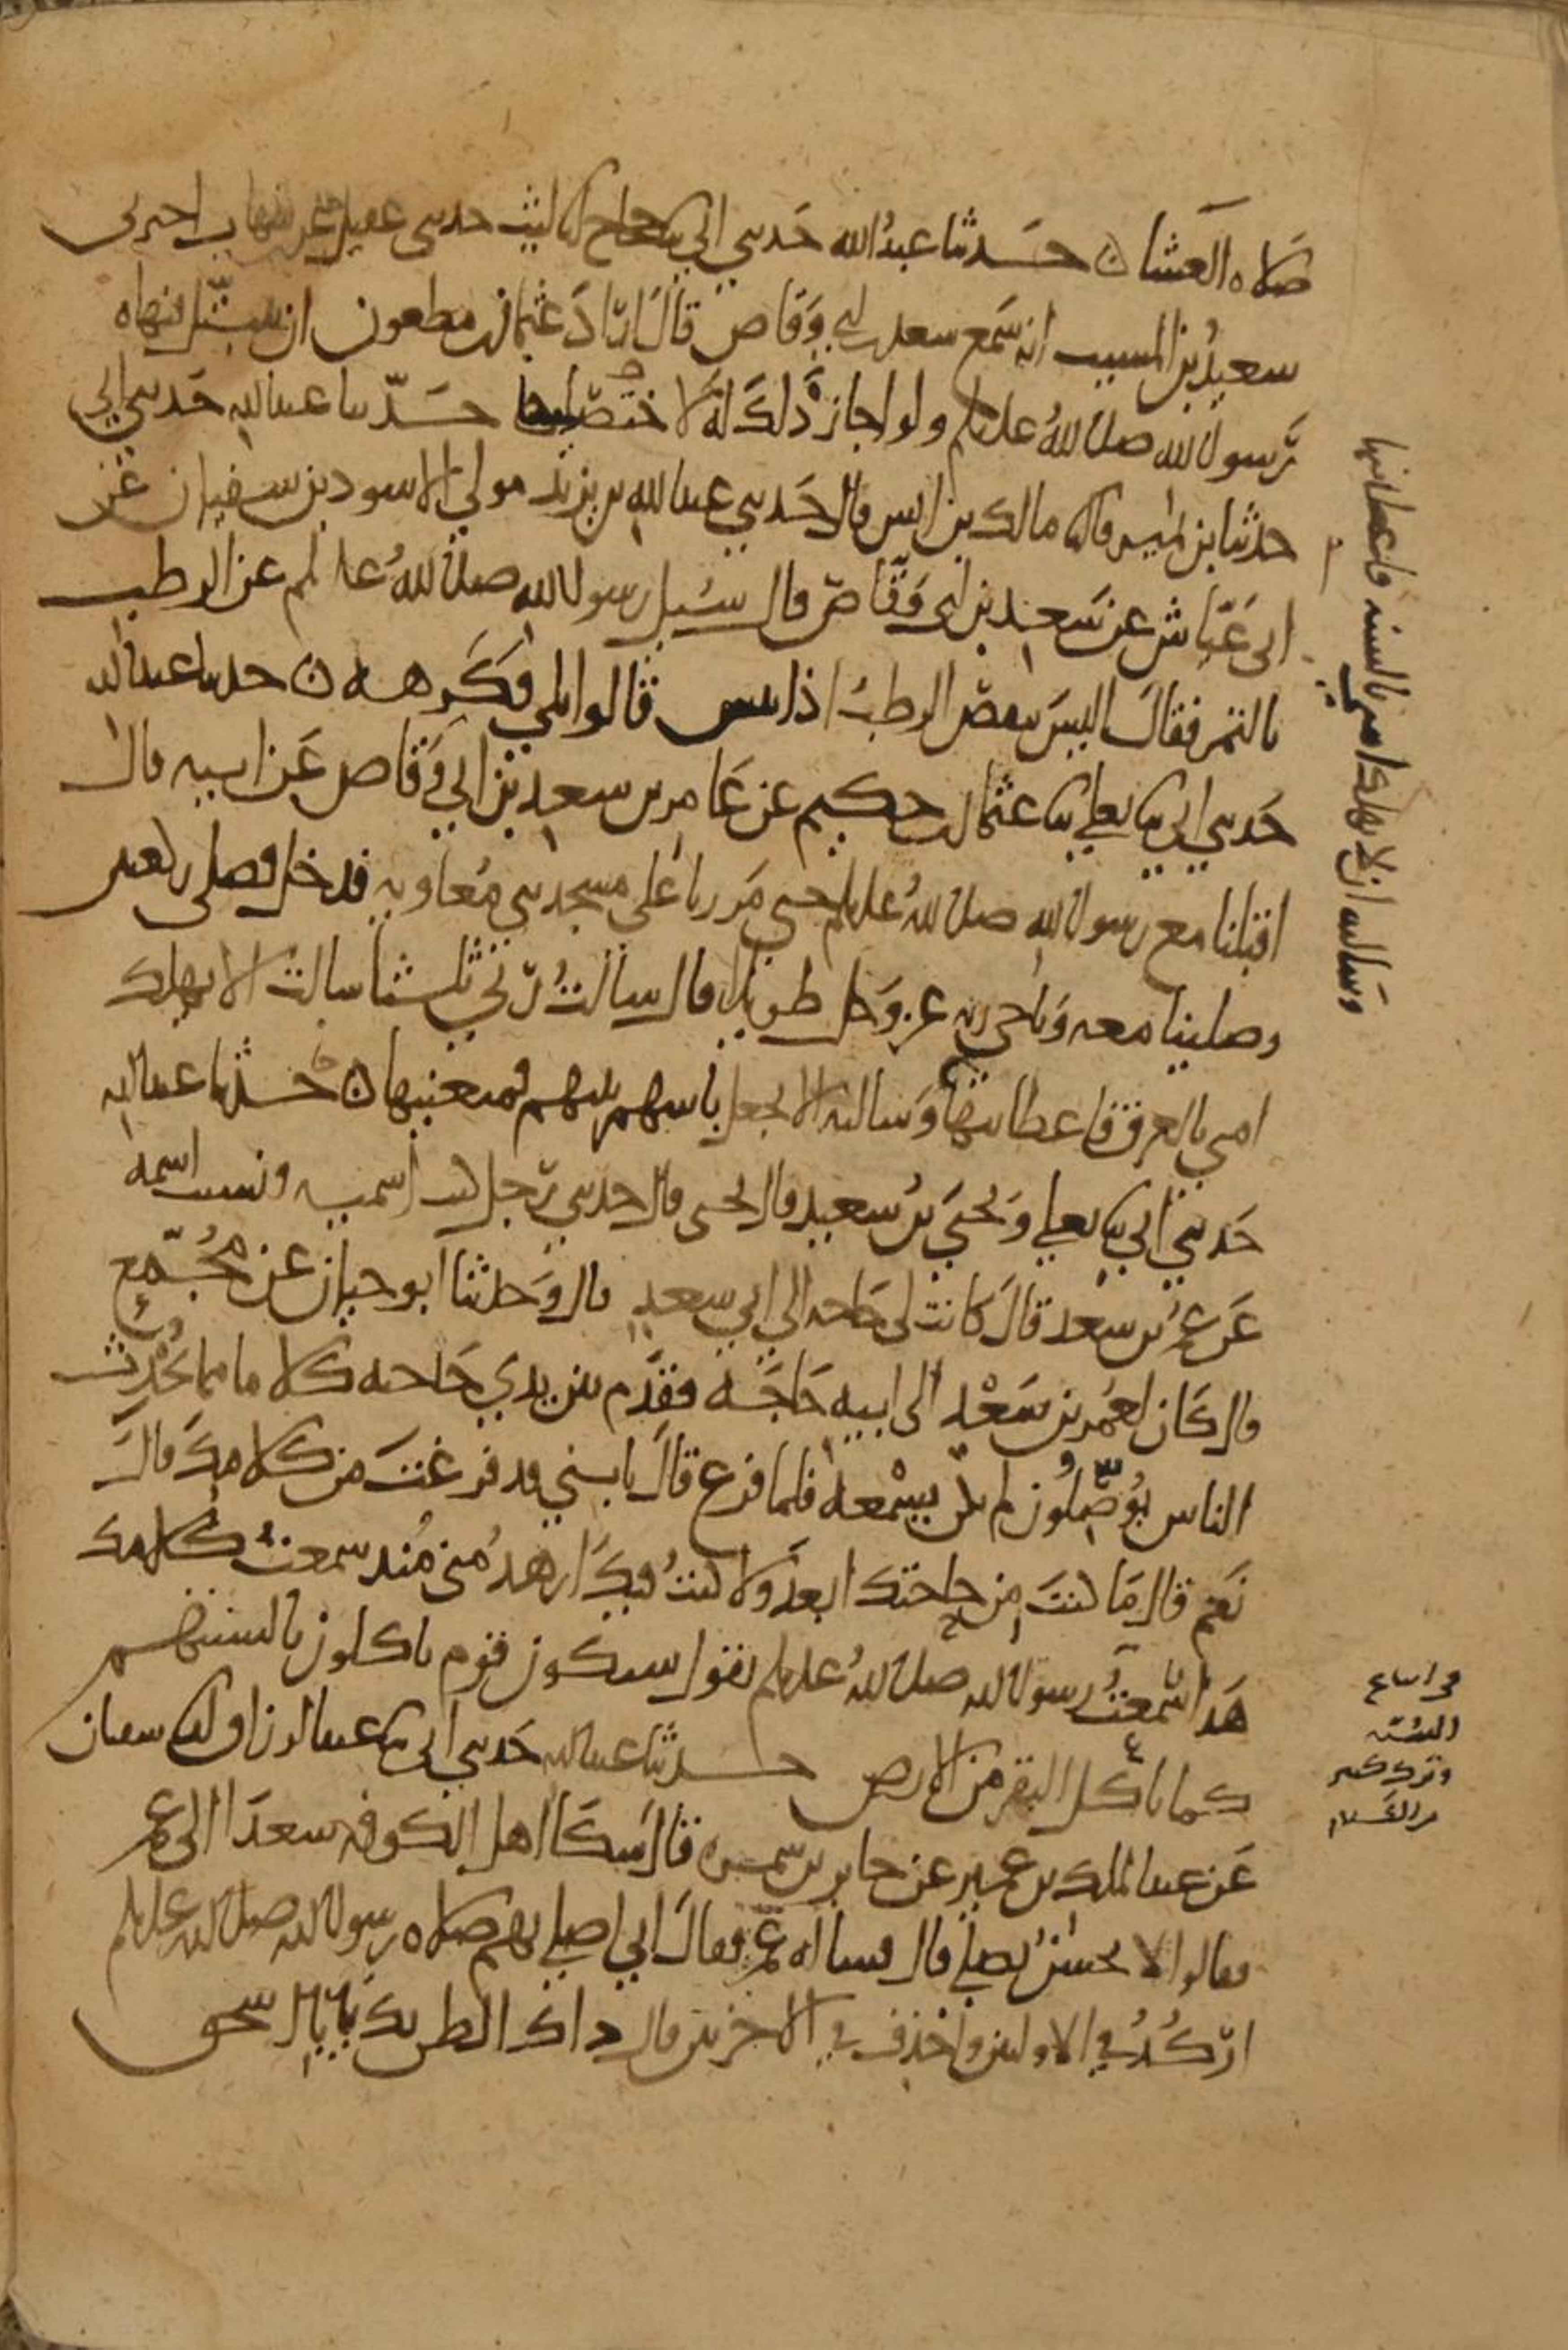 صلاه العشا ن حدثنا عبد الله حدثني ابي ثنا حجاج انا ليث حدثني عقيل عن ابن شهاب اخبرني
سعيد بن المسيب انه سمع سعد بن ابي وقاص قال اراد عثمان بن مظعون ان يتبتل فنهاه
رسول الله صلى الله عليه وسلم ولو اجاز ذلك له لاختصينا حدثنا عبد الله حدثني ابي
حدثنا ابن نمير قال ثنا مالك بن انس قال حدثني عبد الله بن يزيد مولى الاسود بن سفيان عن
ابي عياش عن سعد بن ابي وقاص قال سئل رسول الله صلى الله عليه وسلم عن الرطب
بالتمر فقال اليس ينقص الرطب اذا يبس قالوا بلى فكرهه ن حدثنا عبد الله
حدثني ابي ثنا يعلى ثنا عثمان بن حكيم عن عامر بن سعد بن ابي وقاص عن ابيه قال
اقبلنا مع رسول الله صلى الله عليه وسلم حتى مررنا على مسجد بني معاويه فدخل فصلى ركعتين
وصلينا معه وناجى ربه عز وجل طويلا قال سالت ربي ثلثا سالته الا يهلك
امتي بالغرق فاعطانيها وسالته الا يجعل باسهم بينهم فمنعنيها ن حدثنا عبد الله
حدثني ابي ثنا يعلى ويحيى بن سعيد قال يحيى قال حدثني رجل كنت اسميه ونسيت اسمه
عن عمر بن سعد قال كانت لي حاجه الى ابي سعد قال وحدثنا ابو حيان عن مجمع
قال كان لعمر بن سعد الى ابيه حاجه فقدم بين يدي حاجته كلاما مما يحدث
الناس يوصلون لم يكن يسمعه فلما فرغ قال يا بني قد فرغت من كلامك قال
نعم قال ما كنت من حاجتك ابعد ولا كنت فيك ازهد مني منذ سمعت كلامك
هذا سمعت رسول الله صلى الله عليه وسلم يقول سيكون قوم ياكلون بالسنتهم
كما تاكل البقر من الارض حدثنا عبد الله حدثني ابي ثنا عبد الرزاق انا سفيان
عن عبد الملك بن عمير عن جابر بن سمره قال شكا اهل الكوفه سعدا الى عمر
فقالوا لا يحسن يصلي قال فساله عمر فقال اني اصلي بهم صلاه رسول الله صلى الله عليه وسلم
اركد في الاوليين واحذف في الاخريين قال ذاك الظن بك يابا اسحق
وسالته ان لا يهلك امتي بالسنه فاعطانيها
السنه